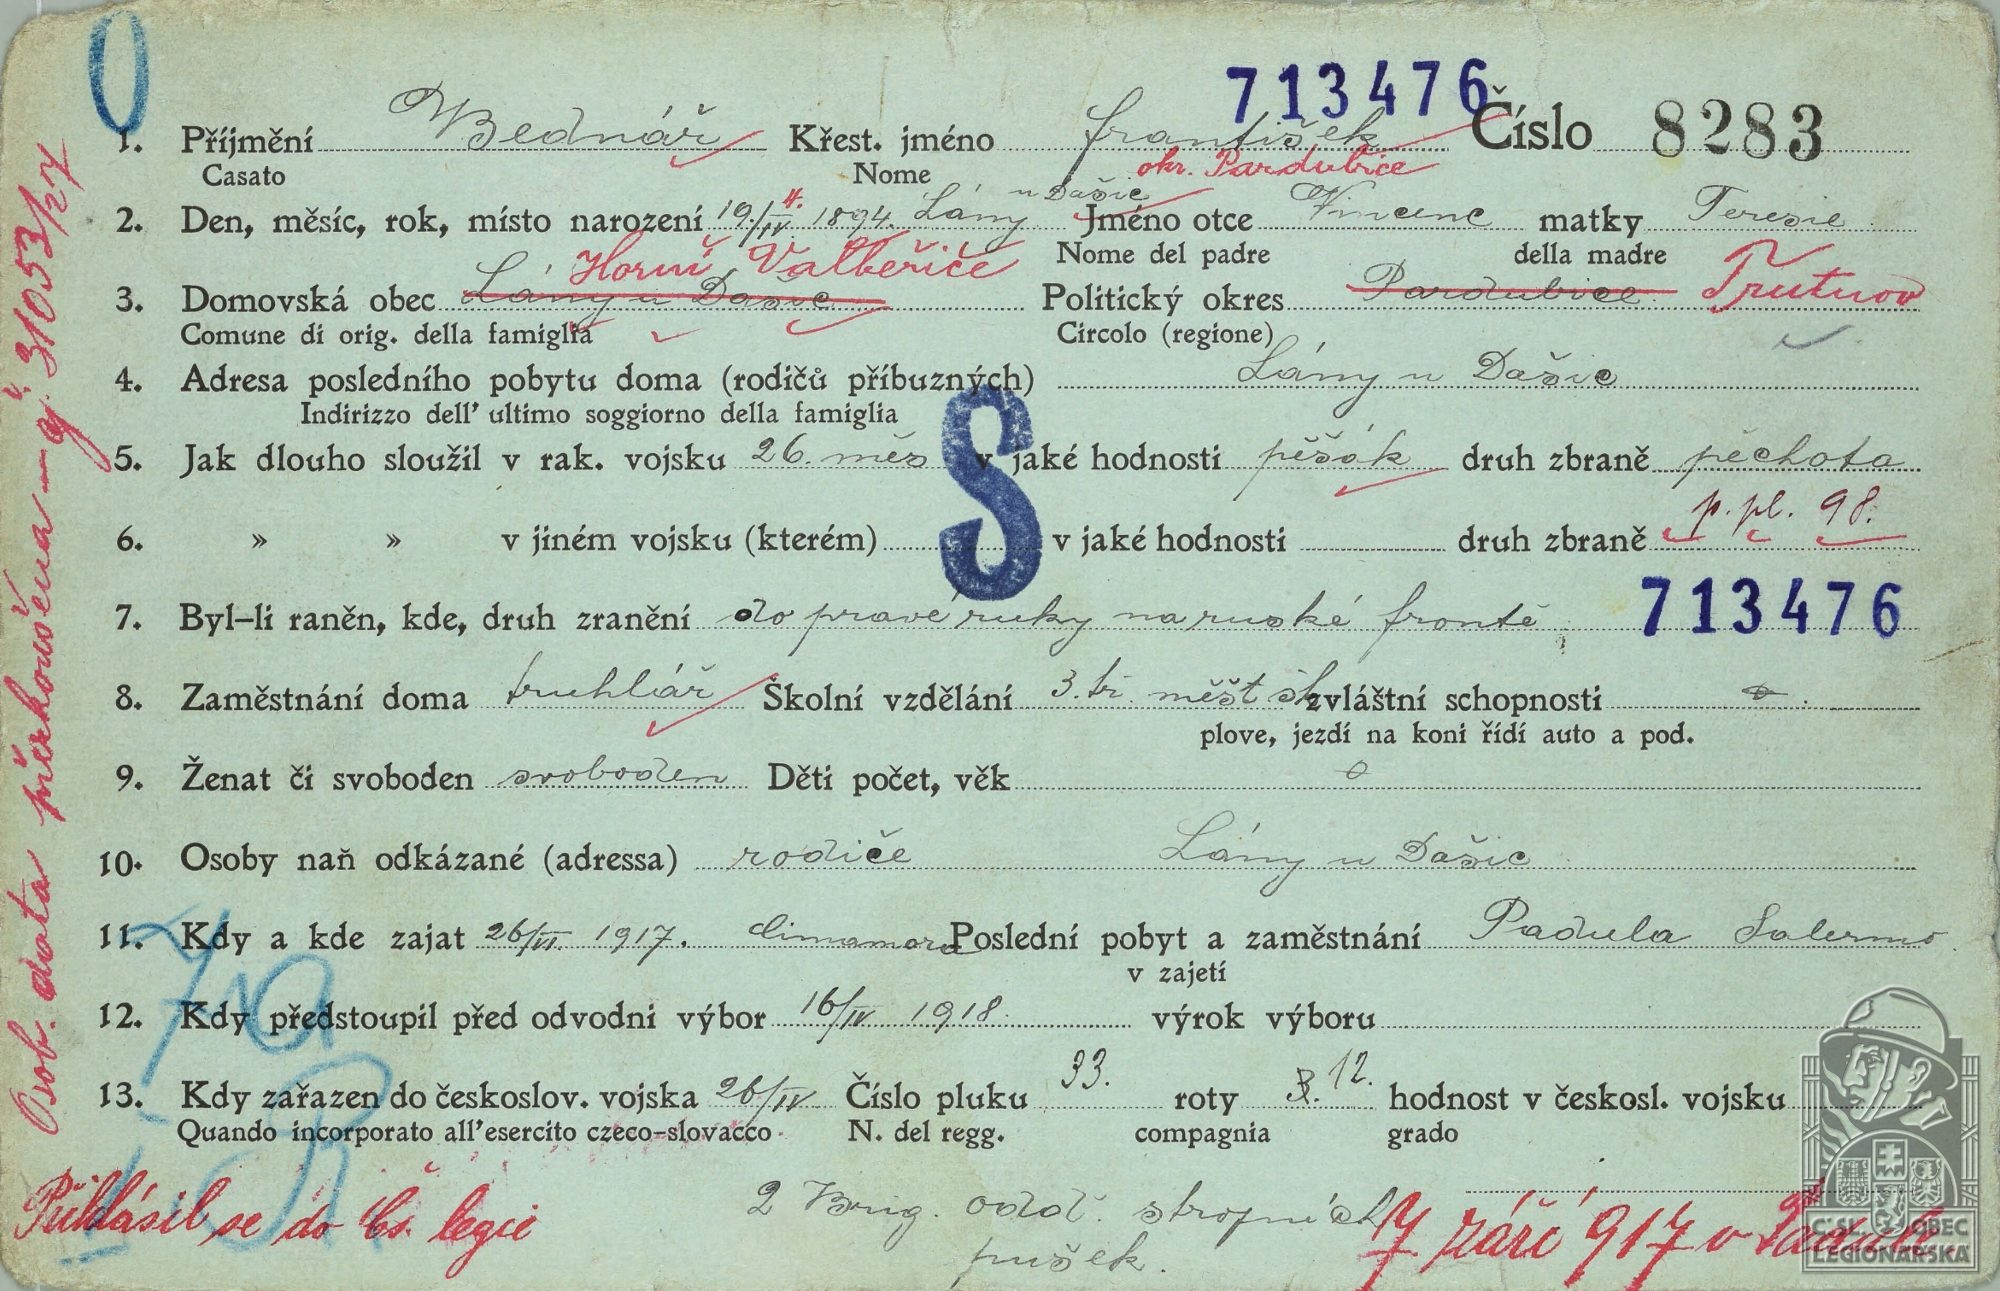 713476
1. Příjmení Bednář Křest. jméno František Číslo 8283
Casato Nome okr. Pardubice
2. Den, měsíc, rok, místo narození 19./IV. 4. 1894. Lány u Dašic Jméno otce Vincenc matky Teresie
Nome del padre della madre
Horní Valteřice Trutnov
3. Domovská obec Lány u Dašic Politický okres Pardubice
Comune di orig. della famiglia Circolo (regione)
4. Adresa posledního pobytu doma (rodičů příbuzných) Lány u Dašic
Indirizzo dell' ultimo soggiorno della famiglia
S
5. Jak dlouho sloužil v rak. vojsku 26. měs v jaké hodnosti pěšák druh zbraně pěchota
p. pl. 98.
6. » » v jiném vojsku (kterém) v jaké hodnosti druh zbraně
7. Byl-li raněn, kde, druh zranění do pravé ruky na ruské frontě 713476
8. Zaměstnání doma truhlář Školní vzdělání 3. tř. měšt šk zvláštní schopnosti
plove, jezdí na koni řídí auto a pod.
9. Ženat či svoboden svoboden Děti počet, věk
10. Osoby naň odkázané (adressa) rodiče Lány u Dašic
11. Kdy a kde zajat 26/VI. 1917. Poslední pobyt a zaměstnání Padula Salerno
v zajetí
12. Kdy předstoupil před odvodni výbor 16/IV 1918. výrok výboru
13. Kdy zařazen do českoslov. vojska 26/IV Číslo pluku 33. roty 12. hodnost v českosl. vojsku
Quando incorporato all'esercito czeco-slovacco N. del regg. compagnia grado
2 Brig. odd. strojních
pušek.
Přihlásil se do čs. legie 7. září 917 v
Osob. data překoušena č. 31053/27
ČSL. OBEC
LEGIONÁŘSKÁ